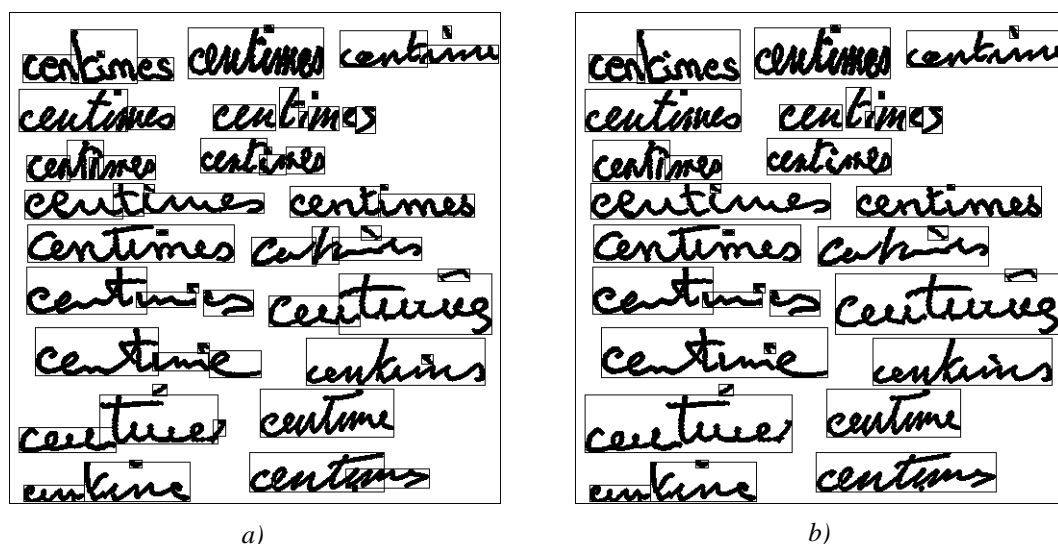 centimes centimes centime
centimes centimes
centimes centimes
centimes centimes
Centimes centimes
centimes centimes
centime centimes
centimes centime
centime centims
a)
centimes centimes centime
centimes centimes
centimes centimes
centimes centimes
Centimes centimes
centimes centimes
centime centimes
centimes centime
centime centims
b)